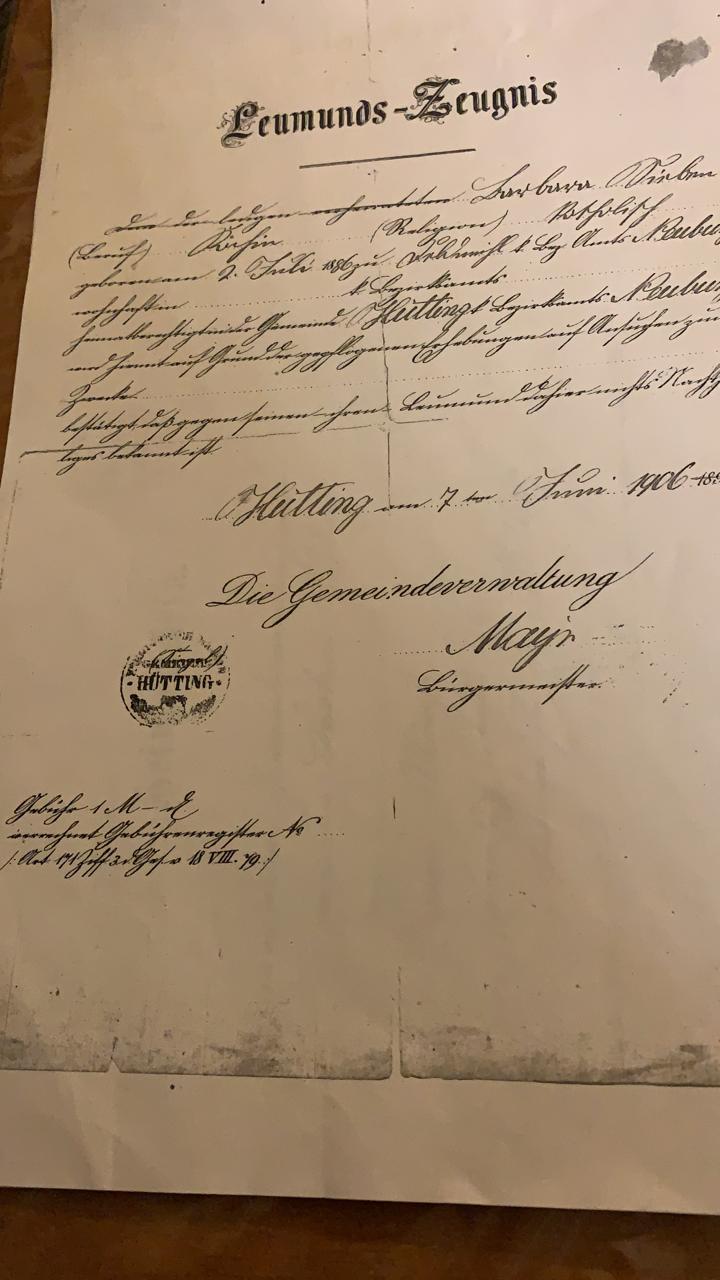 Leumunds-Zeugnis
Dem der ledigen verheirateten Barbara Sieben
(Beruf) Köchin (Religion) katholisch
geboren am 2. Juli 1886 zu Feldmühl k. Bez. Amts Neubu
wohnhaft in k. Bezirksamts
heimatberechtigt in der Gemeinde Hütting k. Bezirksamts Neubur
wird hiermit auf Grund der gepflogenen Erhebungen auf Ansuchen zu
Zwecke
bestätigt, daß gegen seinen ihren Leumund dahier nichts Nacht
liges bekannt ist.
Hütting am 7 ten Juni 1906 18
Die Gemeindeverwaltung
Mayr
Bürgermeister.
(Siegel)
HÜTTING
Gebühr 1 M – ₰.
verrechnet Gebührenregister No
/: Art 171 Ziff 3 d. Ges. v. 18 VIII. 79 :/